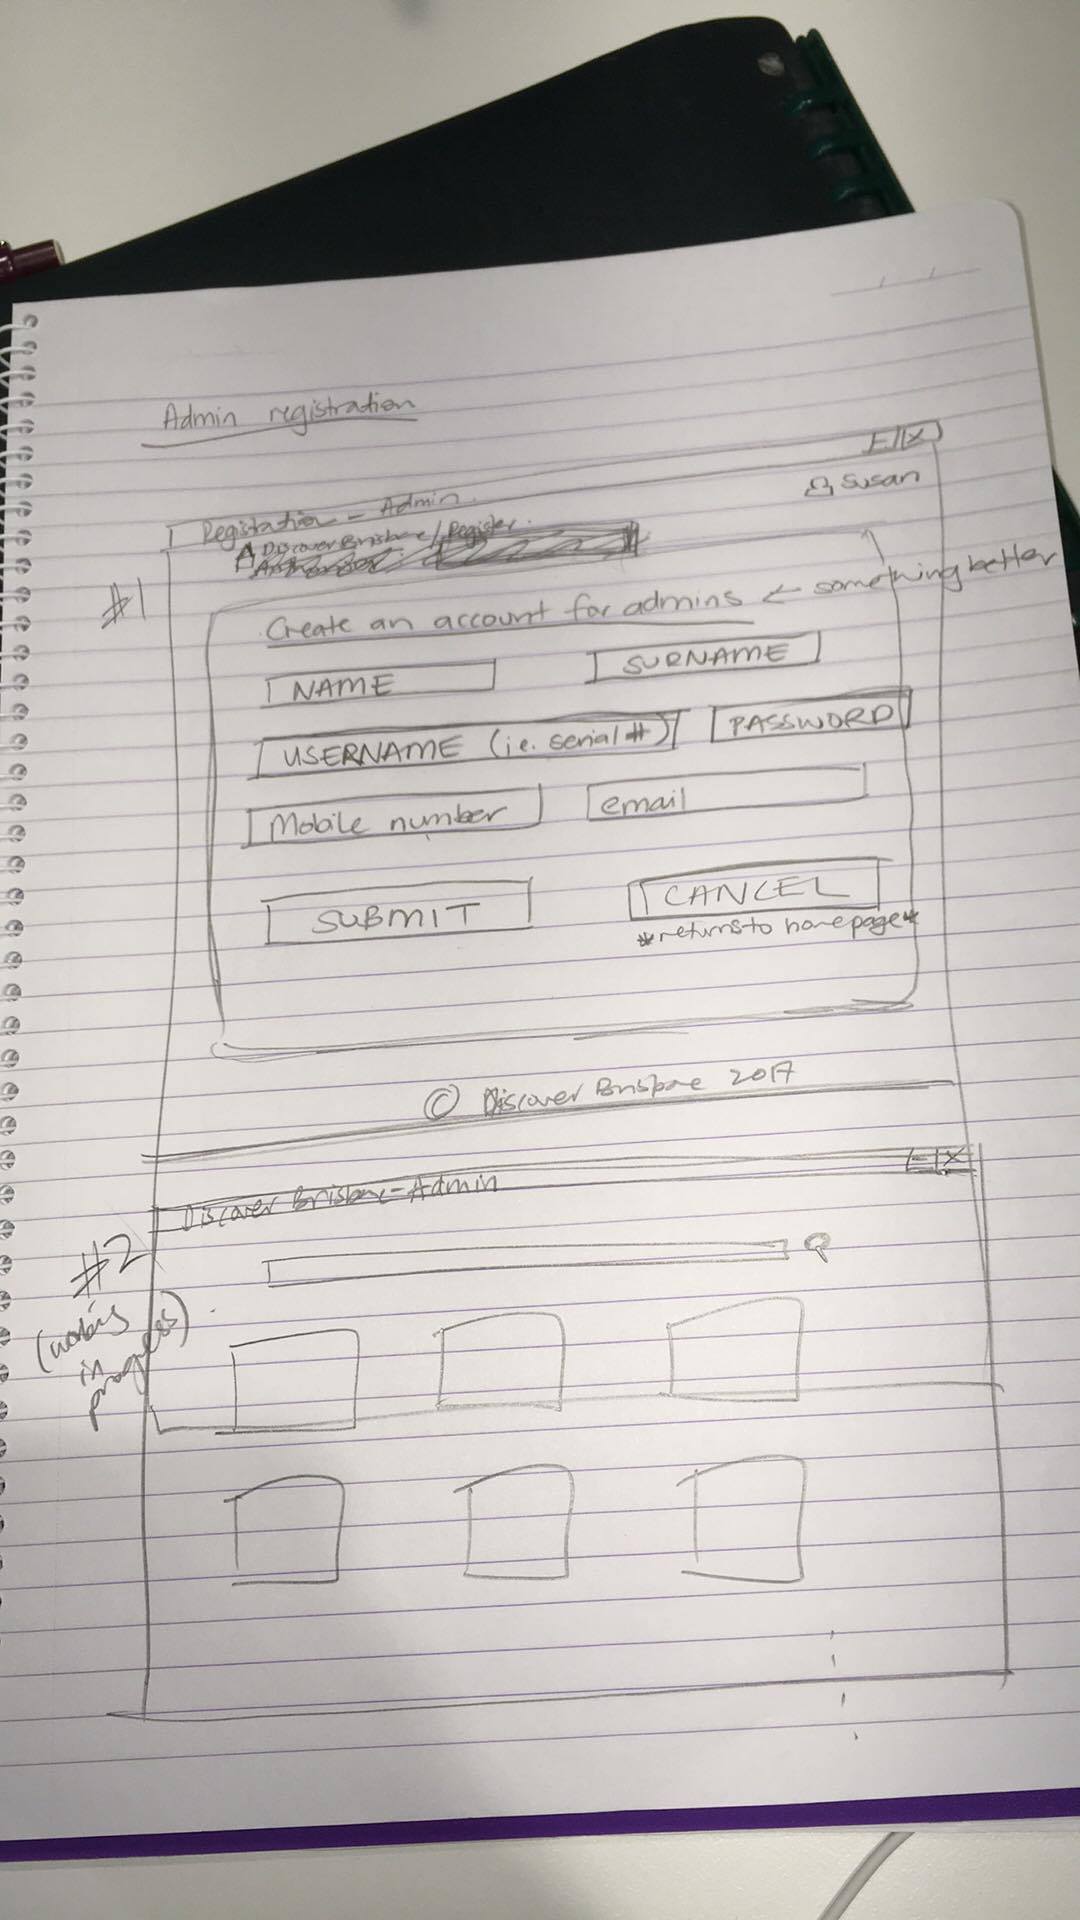 Admin registration
Registration - Admin
- | X
Susan
Discover Brisbane / Register
#1
Create an account for admins ← something better
NAME
SURNAME
USERNAME (i.e. serial #)
PASSWORD
Mobile number
email
SUBMIT
CANCEL
*returns to home page*
© Discover Brisbane 2017
Discover Brisbane - Admin
- | X
#2
in
progress)